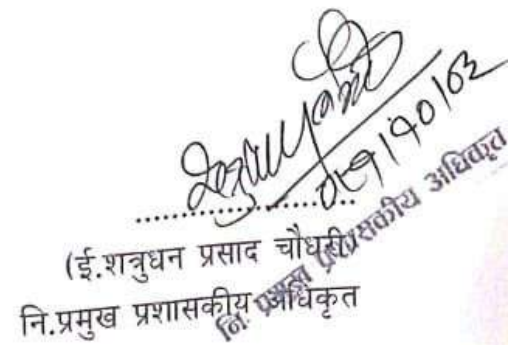 ०७९।१०।०२
....................
(ई.शत्रुधन प्रसाद चौधरी)
नि.प्रमुख प्रशासकीय अधिकृत
नि. प्रमुख प्रशासकीय अधिकृत